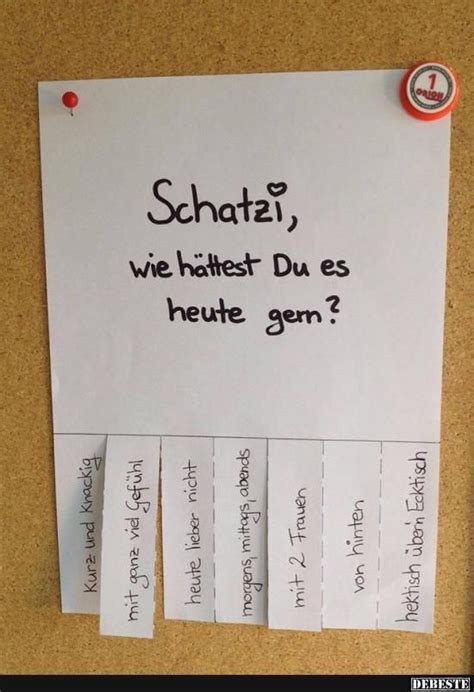 1
ORION
Schatzi,
wie hättest Du es
heute gern?
Kurz und knackig
mit ganz viel Gefühl
heute lieber nicht
morgens, mittags, abends
mit 2 Frauen
von hinten
hektisch über'n Ecktisch
DEBESTE